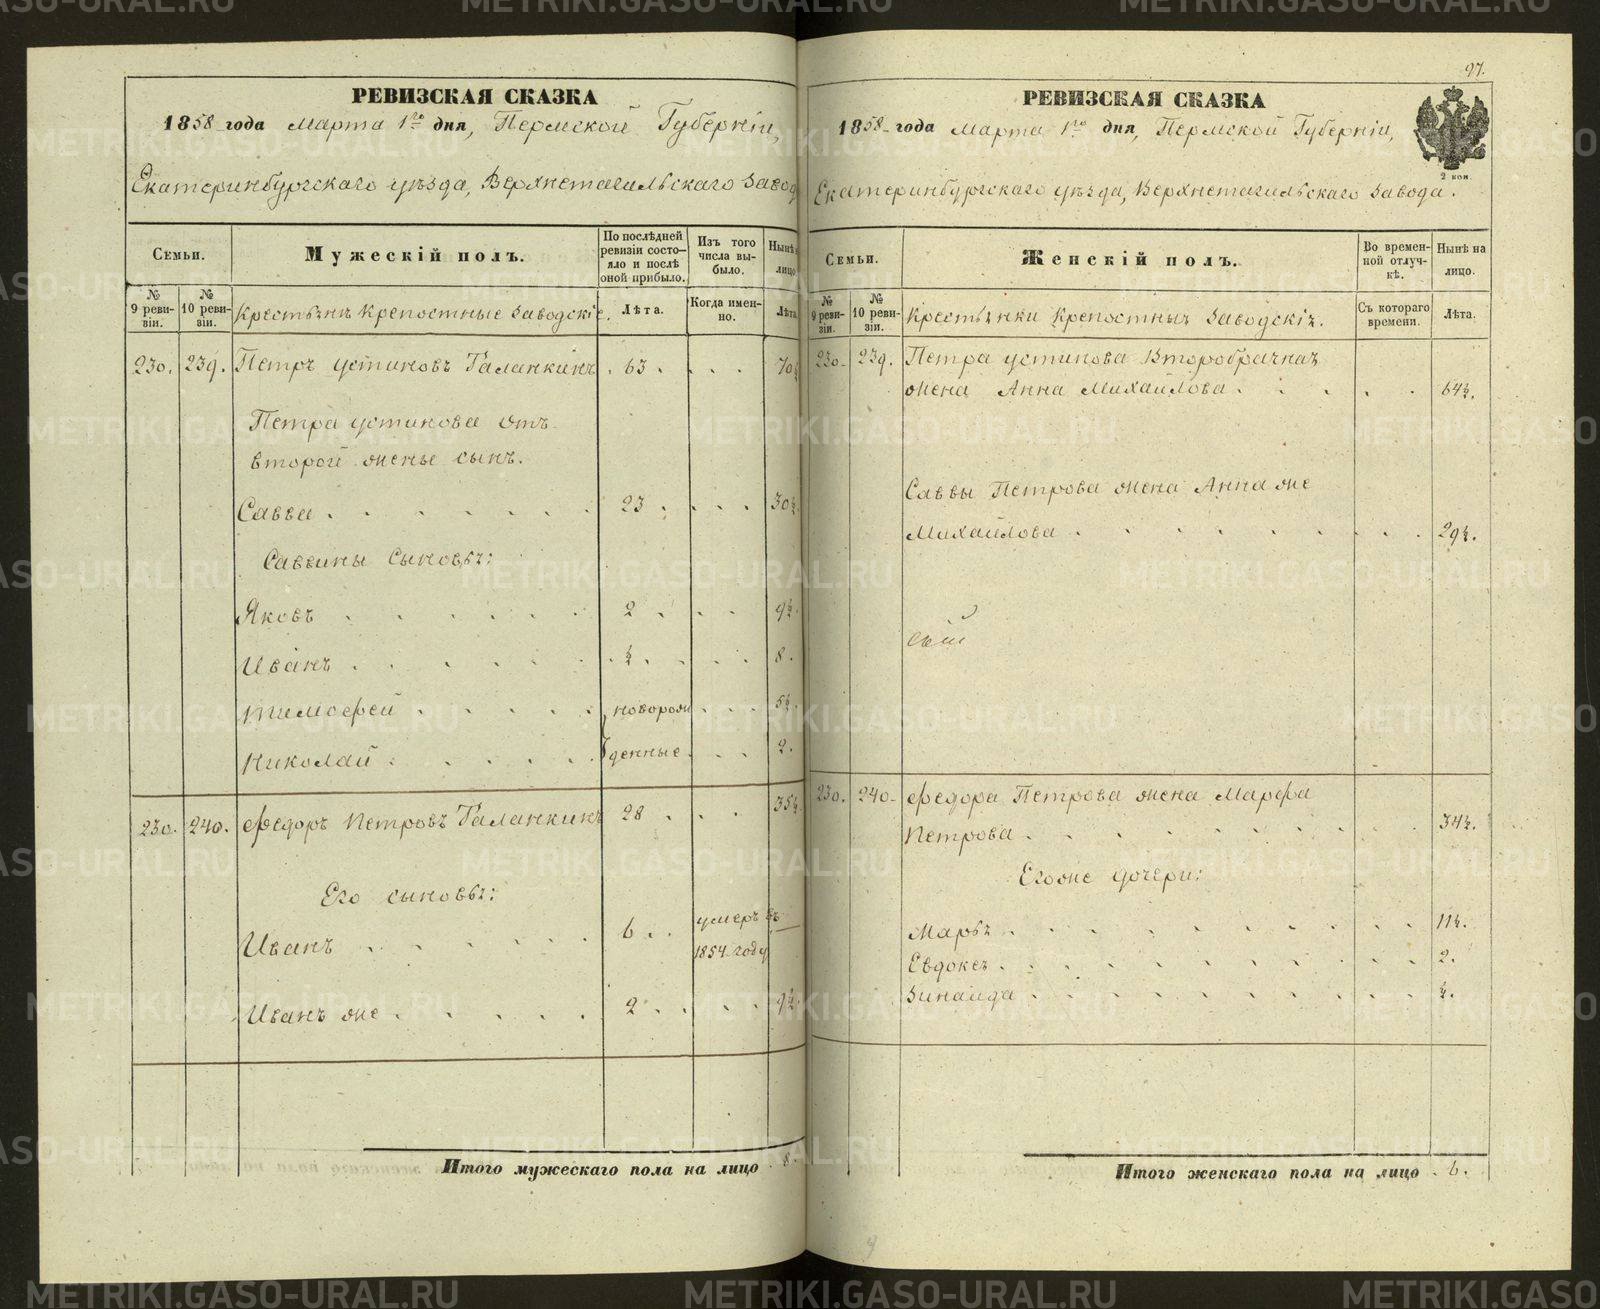 РЕВИЗСКАЯ СКАЗКА
1858 года Марта 1го дня, Пермской Губерніи,
Екатеринбургскаго уѣзда, Верхнетагильскаго завод
Семьи.
Мужескій полъ.
По послѣдней ревизіи состояло и послѣ оной прибыло.
Изъ того числа выбыло.
Нынѣ на лицо.
№ 9 ревизіи.
№ 10 ревизіи.
Крестьяне крепостные заводскіе.
Лѣта.
Когда именно.
Лѣта.
230. 239. Петръ Устиновъ Галанкинъ . 63 . . . . 70½
Петра Устинова отъ
второй женье сынъ.
Савва . . . . . . . 23 . . . . 30½
Саввины сыновьѣ:
Яковъ . . . . . . 2 . . . 9½.
Иванъ . . . . . . ½ . . . . 8.
Тимофей . . . . . новорож . . . 5½.
Николай . . . . . денные . . . 2.
230. 240. Федоръ Петровъ Галанкинъ 28 . . . 35½
Его сыновьѣ:
Иванъ . . . . . . 6 . . умеръ въ —
1854 году
Иванъ же . . . . . 2 . . . . 9½.
Итого мужескаго пола на лицо . 8.
97.
РЕВИЗСКАЯ СКАЗКА
1858 года Марта 1го дня, Пермской Губерніи,
2 коп.
Екатеринбургскаго уѣзда, Верхнетагильскаго завода.
Семьи.
Женскій полъ.
Во временной отлучкѣ.
Нынѣ на лицо.
№ 9 ревизіи.
№ 10 ревизіи.
Крестьянки крепостныя заводскія.
Съ котораго времени.
Лѣта.
230. 239. Петра Устинова второбрачная
жена Анна Михайлова . . . . . 64½.
Саввы Петрова жена Анна же
Михайлова . . . . . . . . 29½.
230. 240. Федора Петрова жена Марфа
Петрова . . . . . . . . . 34½.
Его же дочери:
Марья . . . . . . . . . 11½.
Евдокея . . . . . . . . . 2.
Зинаида . . . . . . . . . ½.
Итого женскаго пола на лицо . 6.
METRIKI.GASO-URAL.RU